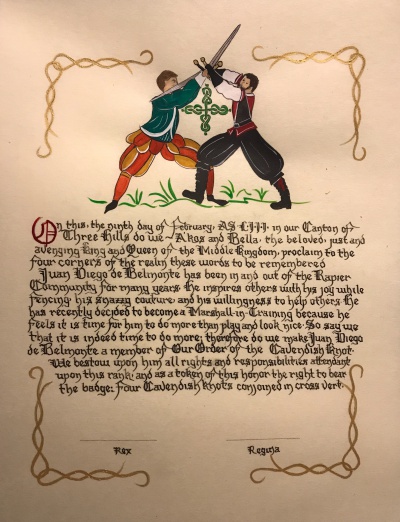 On this, the ninth day of February, AS LIII, in our Canton of
Three Hills do we Akos and Bella, the beloved, just and
avenging King and Queen of the Middle Kingdom, proclaim to the
four corners of the realm these words to be remembered
Juan Diego de Belmonte has been in and out of the Rapier
Community for many years. He inspires others with his joy while
fencing, his snazzy couture, and his willingness to help others. He
has recently decided to become a Marshall-in-Training because he
feels it is time for him to do more than play and look nice. So say we
that it is indeed time to do more; therefore do we make Juan Diego
de Belmonte a member of Our Order of the Cavendish Knot.
We bestow upon him all rights and responsibilities attendant
upon this rank; and as a token of this honor the right to bear
the badge: four Cavendish knots conjoined in cross vert.
Rex
Regina